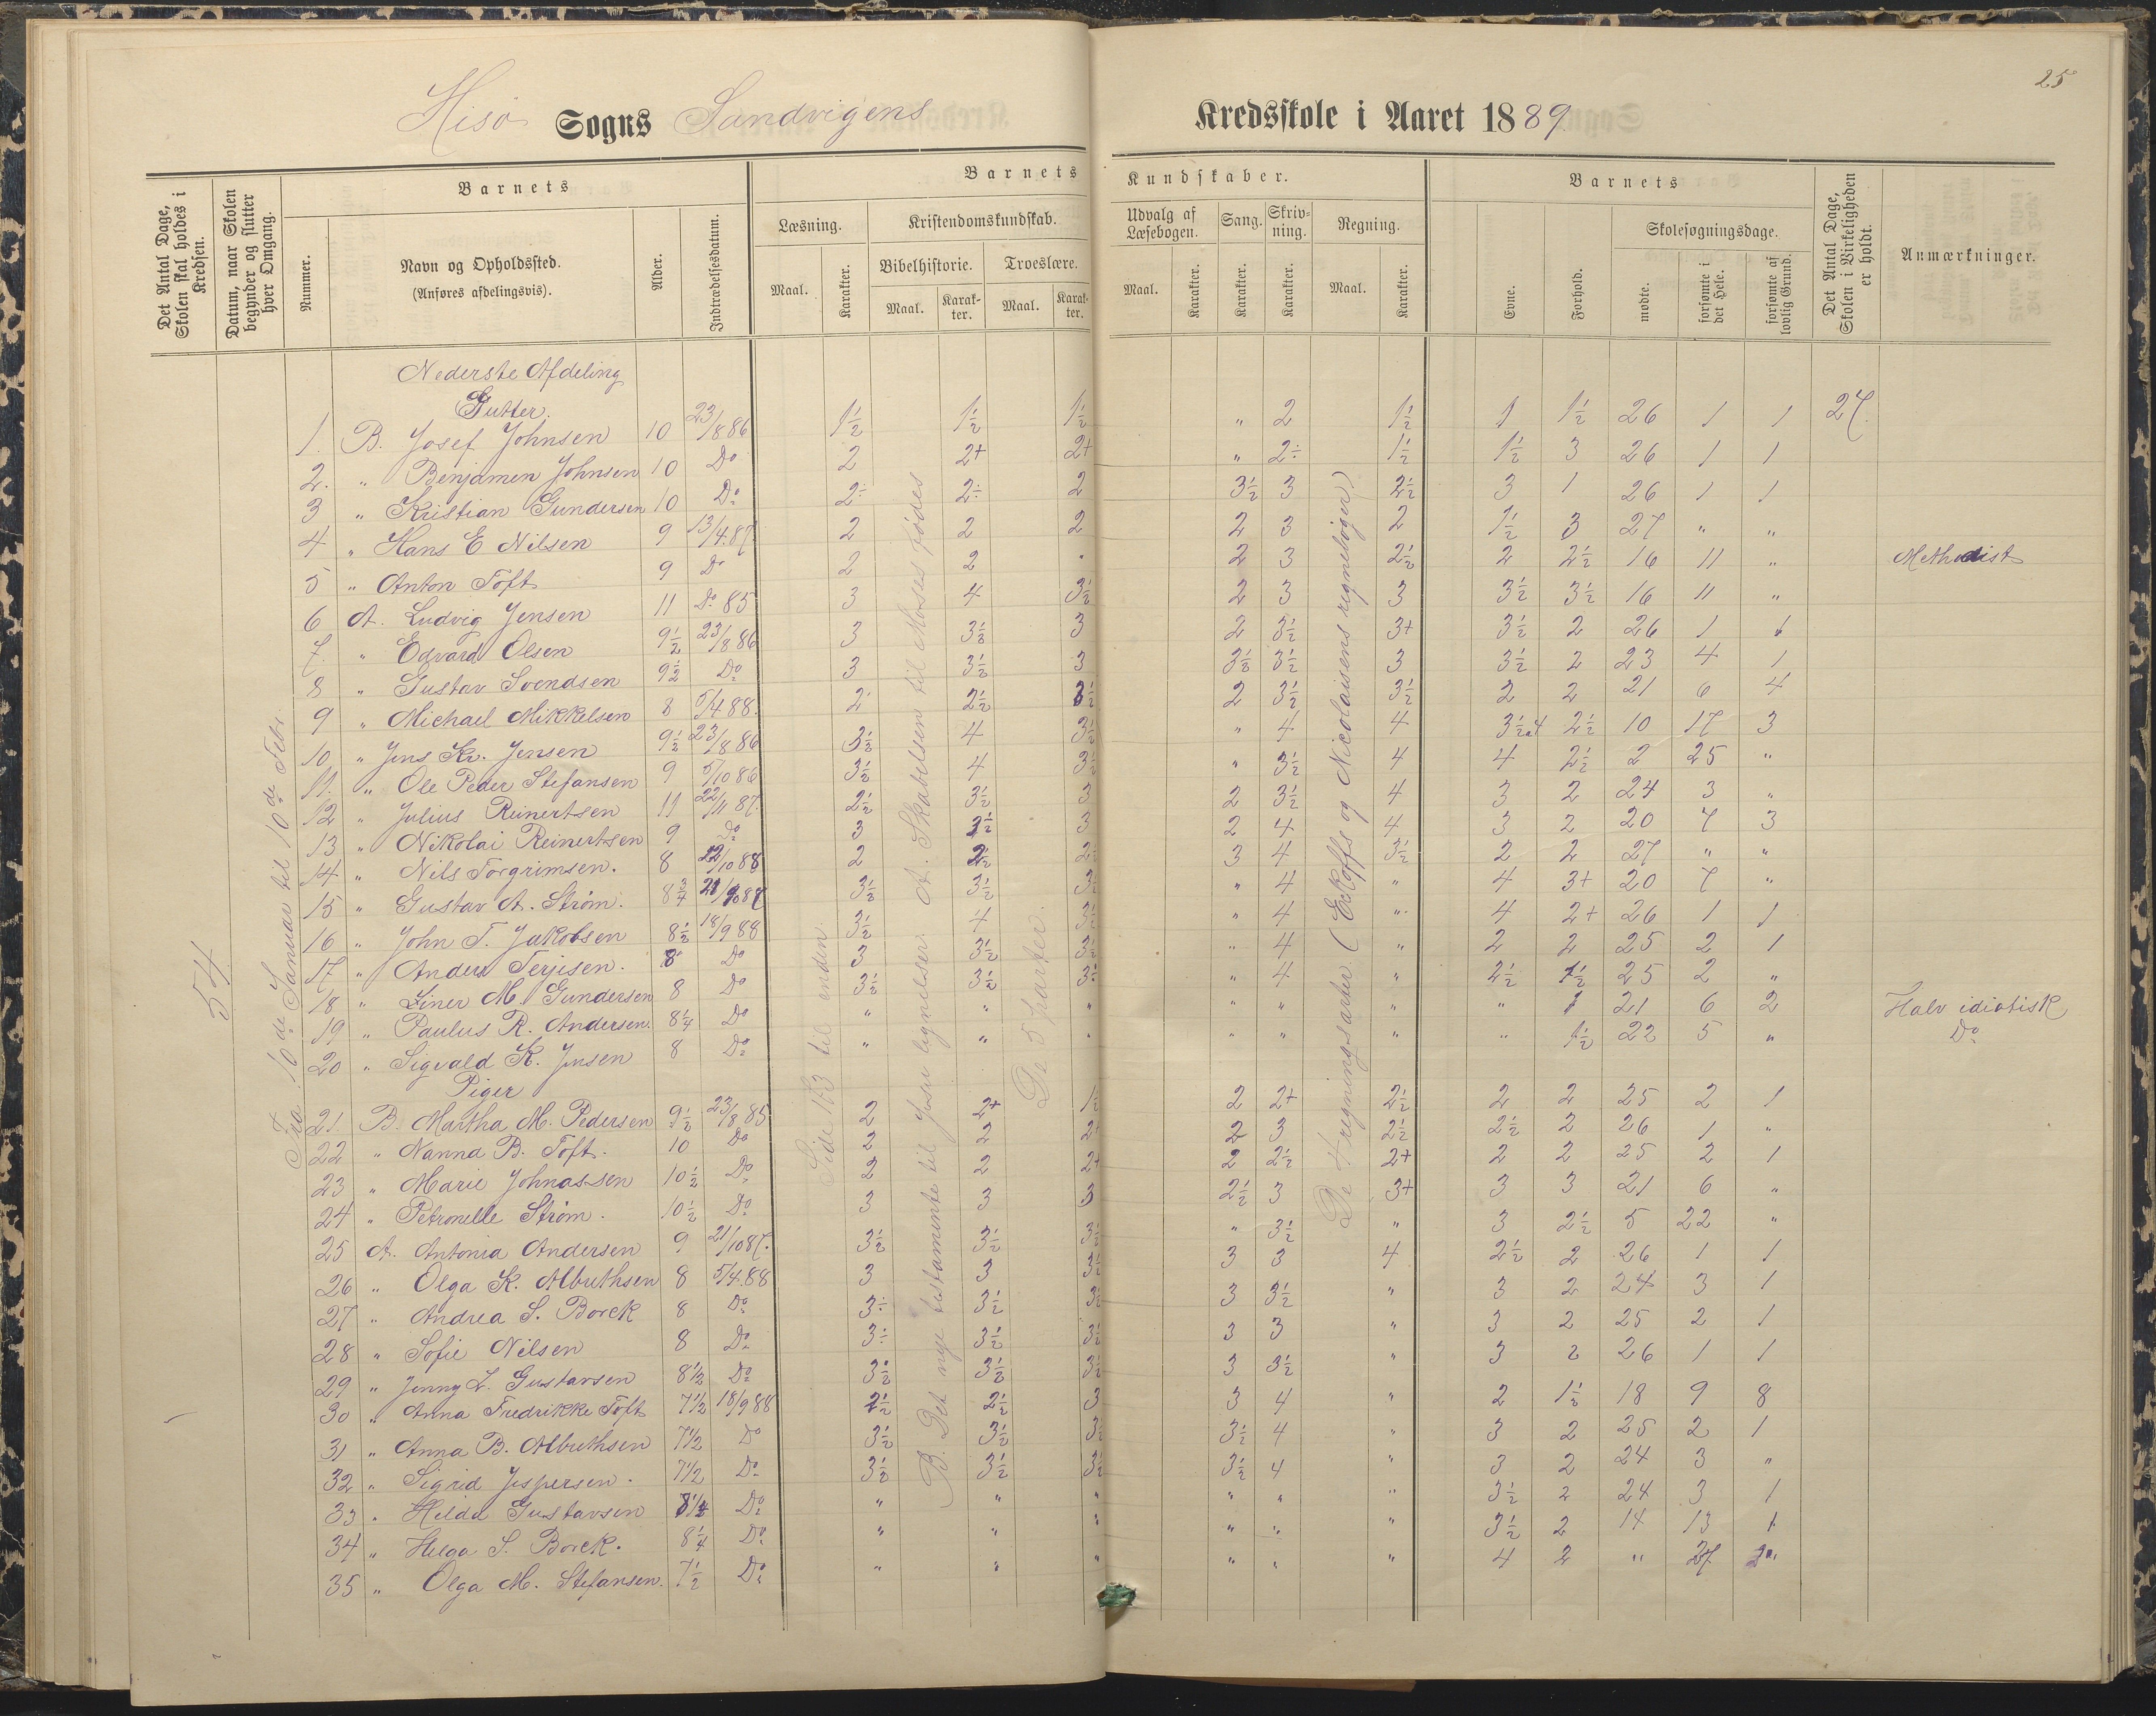 25
Hisø Sogns Sandvigens Kredsskole i Aaret 1889
Det Antal Dage, Skolen skal holdes i Kredsen.
Datum, naar Skolen begynder og slutter hver Omgang.
Barnets
Nummer.
Navn og Opholdssted.
(Anføres afdelingsvis).
Alder.
Indtrædelsesdatum.
Barnets Kundskaber.
Læsning.
Maal. Karakter.
Kristendomskundskab.
Bibelhistorie. Troeslære.
Maal. Karakter. Maal. Karakter.
Udvalg af Læsebogen. Sang. Skrivning. Regning.
Maal. Karakter. Karakter. Karakter. Maal. Karakter.
Barnets
Evne. Forhold.
Skolesøgningsdage.
mødte. forsømte i det Hele. forsømte af lovlig Grund.
Det Antal Dage, Skolen i Virkeligheden er holdt.
Anmærkninger.
54
Fra 10de Januar til 10de Febr.
Side 183 til enden.
A. Skabelsen til Moses fødes
B. Det nye testamente til Jesu lignelser.
De 5 parter.
De 4 regningsarter. (Eckoffs og Nicolaisens regnebøger)
Nederste Afdeling
Gutter.
1. B. Josef Johnsen 10 23/8 86 1½ 1½ 1½ " 2 1½ 1 1½ 26 1 1 27.
2. " Benjamen Johnsen 10 Do 2 2+ 2+ " 2÷ 1½ 1½ 3 26 1 1
3 " Kristian Gundersen 10 Do 2÷ 2÷ 2 3½ 3 2½ 3 1 26 1 1
4 " Hans E Nilsen 9 13/4.87. 2 2 2 2 3 2 1½ 3 27 " "
5 " Anton Toft 9 Do 2 2 " 2 3 2½ 2 2½ 16 11 " Methodist
6 A. Ludvig Jensen 11 Do 85 3 4 3½ 2 3 3 3½ 3½ 16 11 "
7. " Edvard Olsen 9½ 23/8 86 3 3½ 3 2 3½ 3+ 3½ 2 26 1 1
8 " Gustav Svendsen 9½ Do 3 3½ 3 3½ 3½ 3 3½ 2 23 4 1
9 " Michael Mikkelsen 8 5/4 88. 2÷ 2½ 3½ 2 3½ 3½ 2 2 21 6 4
10 " Jens Kr. Jensen 9½ 23/8 86 3½ 4 3½ " 4 4 3½ 2½ 10 17 3
11. " Ole Peder Stefansen 9 5/10 86 3½ 4 3½ " 3½ 4 4 2½ 2 25 "
12 " Julius Reinertsen 11 22/11 87. 2½ 3½ 3 2 3½ 4 3 2 24 3 "
13 " Nikolai Reinertsen 9 Do 3 3½ 3 2 4 4 3 2 20 7 3
14 " Nils Torgrimsen. 8 22/10 88 2 2½ 2½ 3 4 3½ 2 2 27 " "
15 " Gustav A. Strøm. 8¾ 3½ 3½ 3½ " 4 " 4 3+ 20 7 "
16 " John T. Jakobsen 8½ 18/9 88 3½ 4 3½ " 4 " 4 2+ 26 1 1
17 " Anders Terjisen. 8 Do 3 3½ 3½ " 4 " 2 2 25 2 1
18 " Einer M. Gundersen 8 Do 3½ 3½ 3½ " 4 " 2½ 1½ 25 2 "
19 " Paulus R. Andersen. 8¼ Do " " " " " " " 1 21 6 2 Halv idiotisk
20 " Sigvald K. Jensen 8 Do " " " " " " " 1½ 22 5 " Do
Piger
21. B. Martha M. Pedersen 9½ 23/8 85 2 2+ 1½ 2 2+ 2½ 2 2 25 2 1
22 " Nanna B. Toft. 10 Do 2 2 2+ 2 3 2½ 2½ 2 26 1 "
23 " Marie Johnassen 10½ Do 2 2 2+ 2 2½ 2+ 2 2 25 2 1
24 " Petronelle Strøm. 10½ Do 3 3 3 2½ 3 3+ 3 3 21 6 "
25 A. Antonia Andersen 9 21/10 87. 3½ 3½ 3½ " 3½ " 3 2½ 5 22 "
26 " Olga K. Albrethsen 8 5/4.88 3 3 3½ 3 3 4 2½ 2 26 1 1
27 " Andrea S. Borck 8 Do 3÷ 3½ 3½ 3 3½ " 3 2 24 3 1
28 " Sofie Nilsen 8 Do 3÷ 3½ 3½ 3 3 " 3 2 25 2 1
29 " Jenny L. Gustavsen 8½ Do 3½ 3½ 3½ 3 3½ " 3 2 26 1 1
30 " Anna Fredrikke Toft 7½ 18/9 88 2½ 2½ 3 3 4 " 2 1½ 18 9 8
31 " Anna B. Albrethsen 7½ Do 3½ 3½ 3½ 3½ 4 " 3 2 25 2 1
32 " Sigrid Jespersen. 7½ Do 3½ 3½ 3½ 3½ 4 " 3 2 24 3 "
33 " Hilda Gustavsen 8¼ Do " " " " " " 3½ 2 24 3 1
34 " Helga S. Borck. 8¼ Do " " " " " " 3½ 2 14 13 1
35 " Olga M. Stefansen. 7½ Do " " " " " " 4 2 " 27